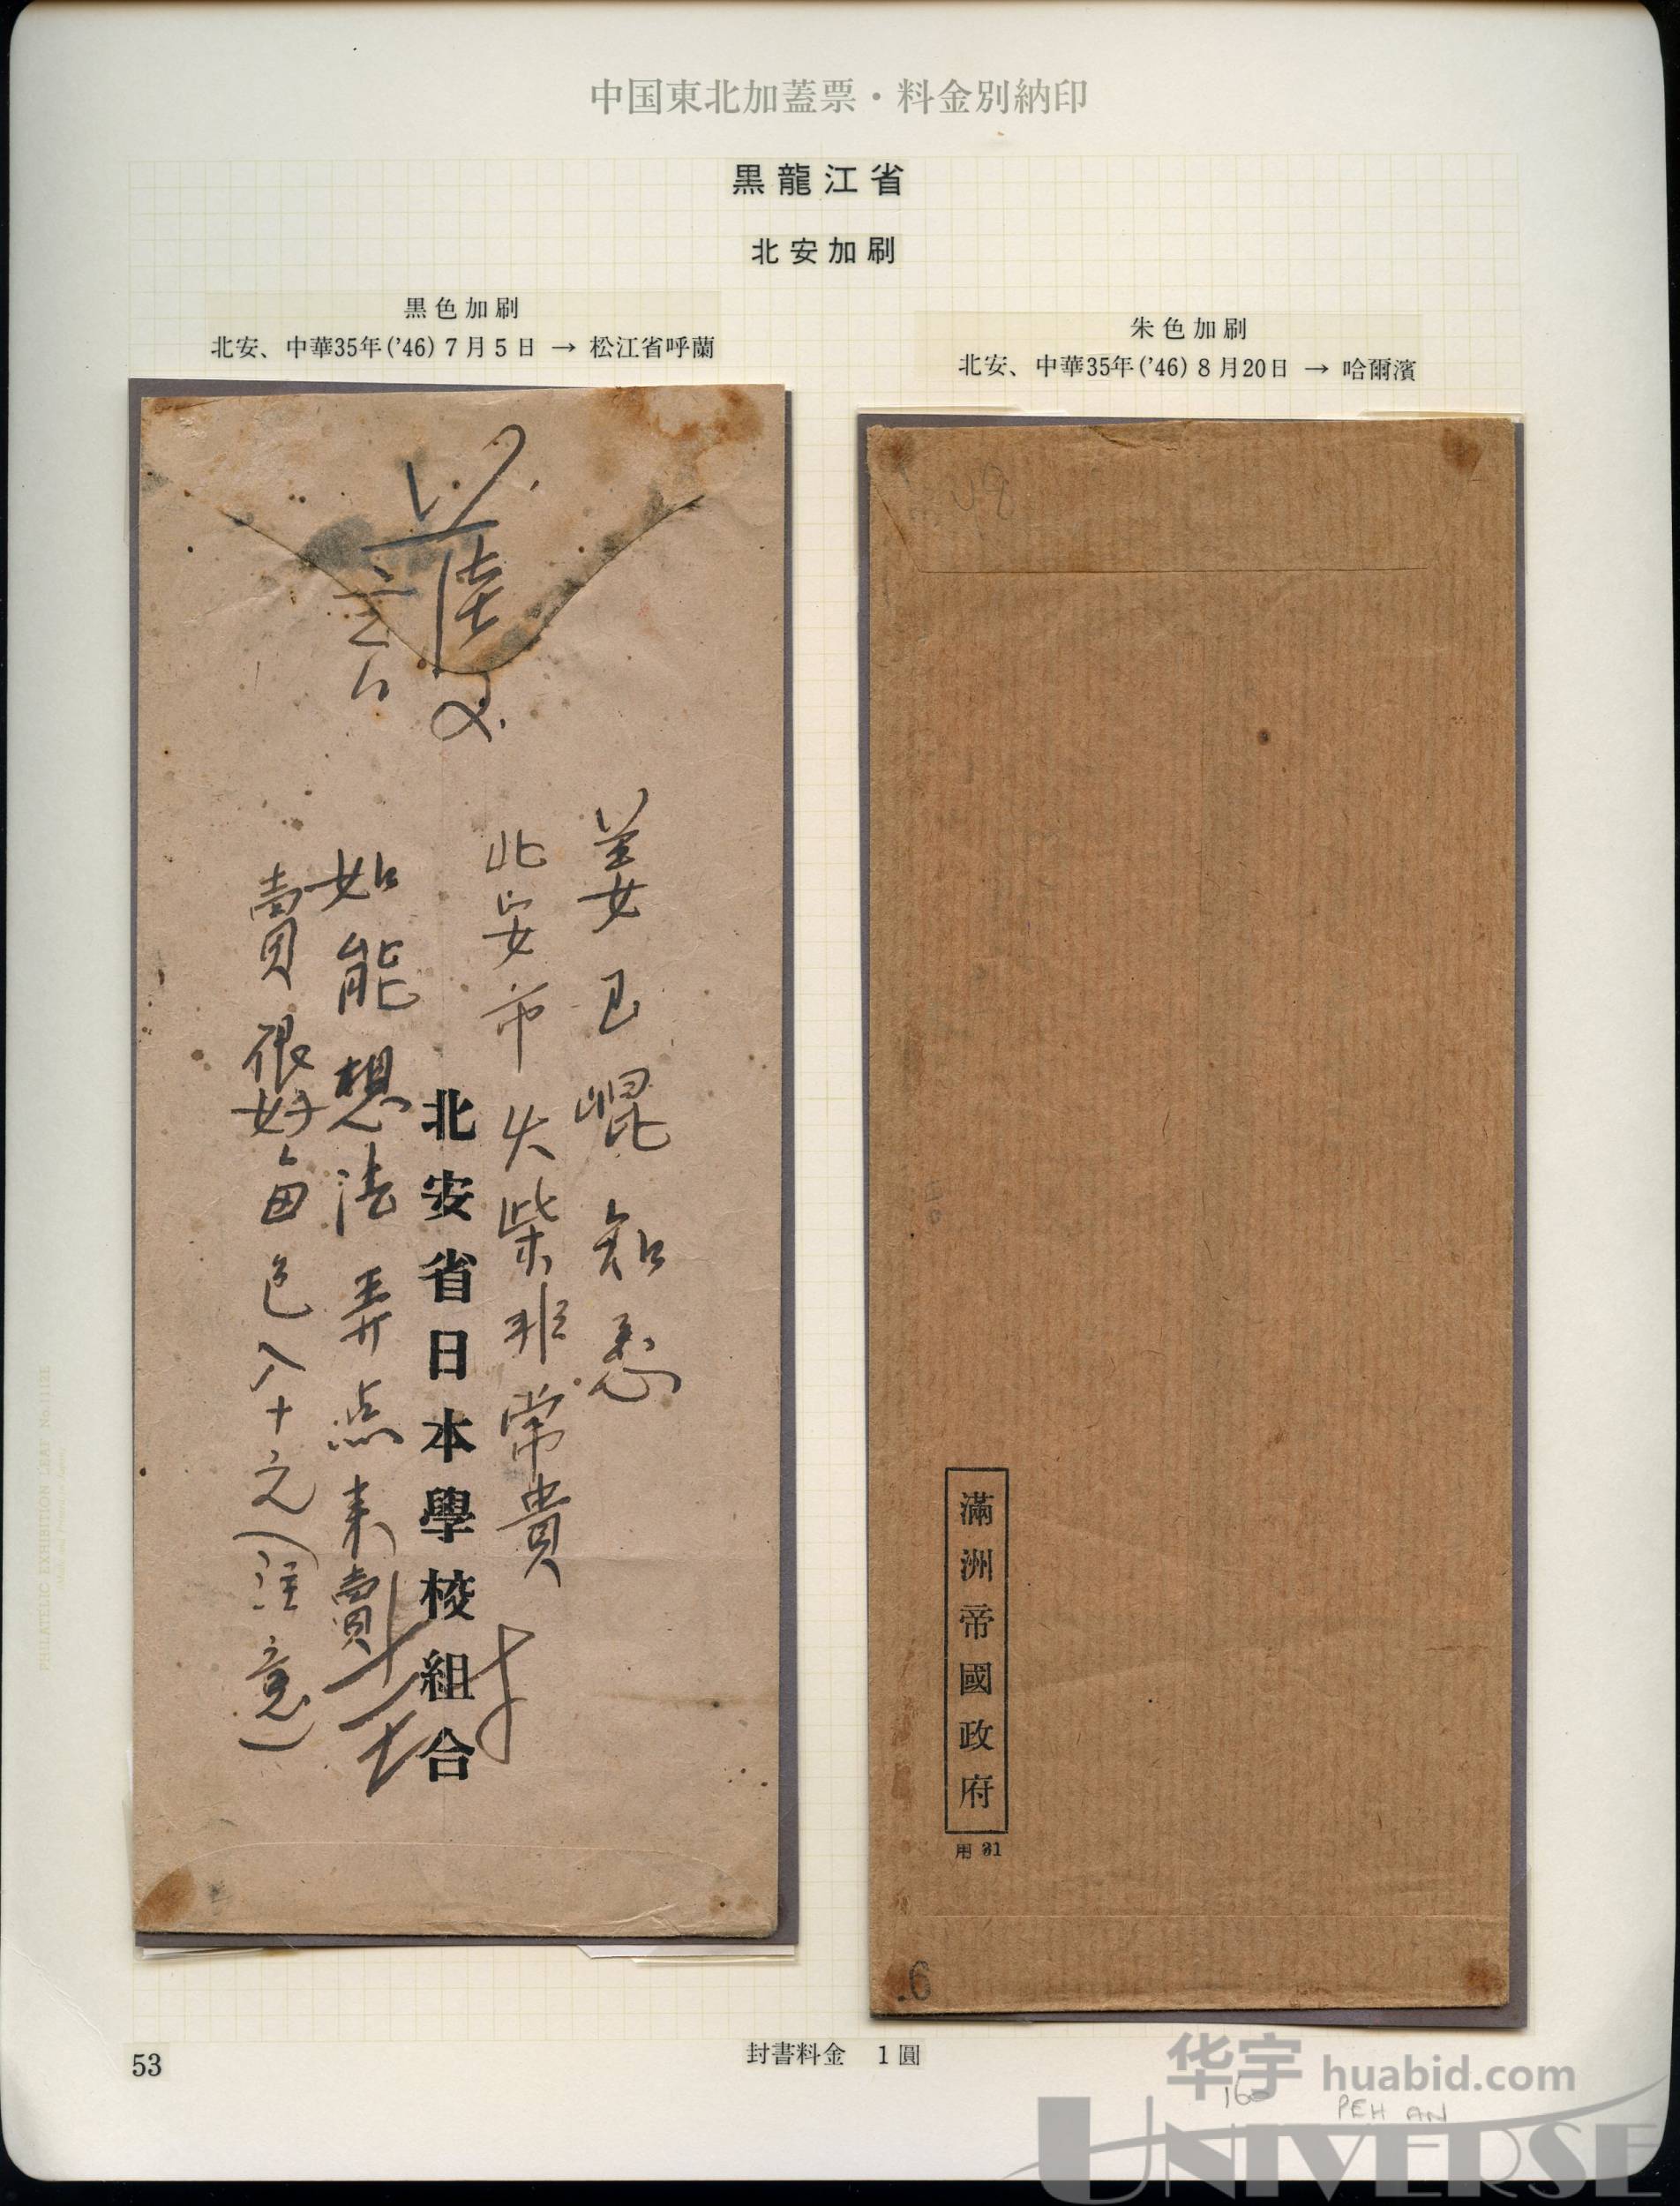 中国東北加蓋票・料金別納印
黒龍江省
北安加刷
黒色加刷
北安、中華35年('46) 7月5日 → 松江省呼蘭
朱色加刷
北安、中華35年('46) 8月20日 → 哈爾濱
姜玉崐知悉
北安市火柴非常貴
北安省日本學校組合
如能想法弄点来賣
賣很好每包八十元(注意)
滿洲帝國政府
用 31
.6
53
封書料金 1圓
160
PEH AN
华宇 huabid.com
UNIVERSE
PHILATELIC EXHIBITION LEAF No.1112E